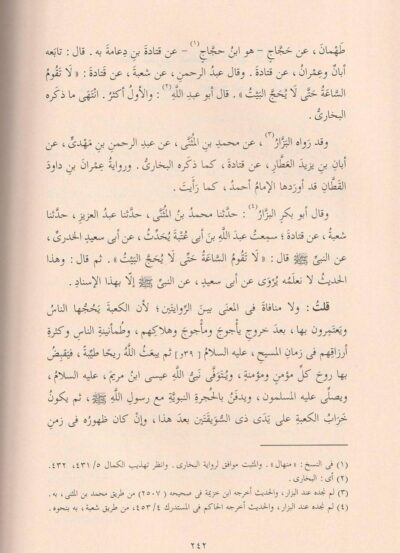 طَهْمانَ ، عن حَجَّاجٍ – هو ابنُ حجَّاجٍ(١) – عن قتادةَ بنِ دِعامةَ به . قال : تابَعه
أبانٌ وعِمْرانُ ، عن قتادةَ . وقال عبدُ الرحمنِ ، عن شعبةَ ، عن قَتادةَ : « لَا تَقُومُ
السَّاعَةُ حَتَّى لَا يُحَجَّ البَيْتُ » . قال أبو عبدِ اللَّهِ(٢) : والأولُ أكثرُ . انْتَهَى ما ذكَره
البخارىُّ .
وقد رَواه البَزَّارُ(٣) ، عن محمدِ بنِ المُثَنَّى ، عن عبدِ الرحمنِ بنِ مَهْدىٍّ ، عن
أبانِ بنِ يزيدَ العَطَّارِ ، عن قتادةَ ، كما ذكَره البخارىُّ . وروايةُ عِمْرانَ بنِ داودَ
القَطَّانِ قد أورَدها الإمامُ أحمدُ ، كما رَأَيتَ .
وقال أبو بكرٍ البزَّارُ(٤) : حدَّثنا محمدُ بنُ المُثَنَّى ، حدَّثنا عبدُ العزيزِ ، حدَّثنا
شعبةُ ، عن قتادةَ ؛ سمِعتُ عبدَ اللَّهِ بنَ أبى عُتْبةَ يُحَدِّثُ ، عن أبى سعيدٍ الخدرىِّ ،
عن النبىِّ ﷺ قال : « لَا تَقُومُ السَّاعَةُ حَتَّى لَا يُحَجَّ البَيْتُ » . ثم قال : وهذا
الحديثُ لا نعلَمُه يُرْوَى عن أبى سعيدٍ ، عن النبىِّ ﷺ إلَّا بهذا الإسنادِ .
قلتُ : ولا منافاةَ فى المعنى بينَ الرِّوايتَين ؛ لأن الكعبةَ يَحُجُّها الناسُ
ويَعتمِرون بها ، بعدَ خروجِ يأجوجَ ومأجوجَ وهلاكِهم ، وطُمأنينةِ الناسِ وكثرةِ
أرزاقِهم فى زمانِ المسيحِ ، عليه السلامُ [٣٩و] ثم يبعَثُ اللَّهُ ريحًا طيِّبةً ، فيَقبِضُ
بها روحَ كلِّ مؤمنٍ ومؤمنةٍ ، ويُتَوَفَّى نبىُّ اللَّهِ عيسى ابنُ مريمَ ، عليه السلامُ ،
ويصلِّى عليه المسلمون ، ويدفَنُ بالحُجرةِ النبويَّةِ مع رسولِ اللَّهِ ﷺ ، ثم يكونُ
خرَابُ الكعبةِ على يَدَى ذى السُّوَيقَتَين بعدَ هذا ، وإن كان ظهورُه فى زمنِ
(١) فى النسخ : « منهال » . والمثبت موافق لرواية البخارى . وانظر تهذيب الكمال ٥/ ٤٣١، ٤٣٢.
(٢) أى : البخارى .
(٣) لم نجده عند البزار ، والحديث أخرجه ابن خزيمة فى صحيحه (٢٥٠٧) من طريق محمد بن المثنى ، به .
(٤) لم نجده عند البزار ، والحديث أخرجه الحاكم فى المستدرك ٤/٤٥٣، من طريق شعبة ، به بنحوه .
٢٤٢